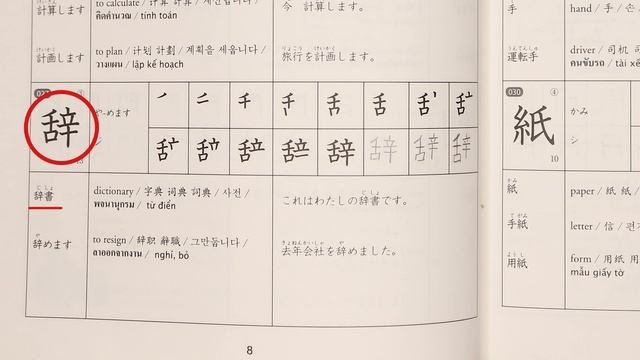 to calculate / 计算 計算 / 계산합니다 /
計算します。
คิดคำนวณ / tính toán
今 計算します。
けいかく
計画します
to plan / 计划 計劃 / 계획을 세웁니다 /
วางแผน / lập kế hoạch
りょこう けいかく
旅行を計画します。
辞
や-めます
13
ノ 二 千 千 舌 舌 舌' 舌亠
辞
じしょ
辞書
dictionary / 字典 词典 詞典 / 사전 /
พจนานุกรม / từ điển
じしょ
これはわたしの辞書です。
や
辞めます
to resign / 辞职 辭職 / 그만둡니다 /
ลาออกจากงาน / nghỉ, bỏ
きょねんかいしゃ や
去年会社を辞めました。
8
手
hand / 手 / 손 /
うんてんしゅ
運転手
driver / 司机
คนขับรถ / tài xế
030
④
紙
かみ
シ
10
かみ
紙
paper / 紙 紙 /
てがみ
手紙
letter / 信 / 편지
ようし
用紙
form / 用紙 用
mẫu giấy tờ